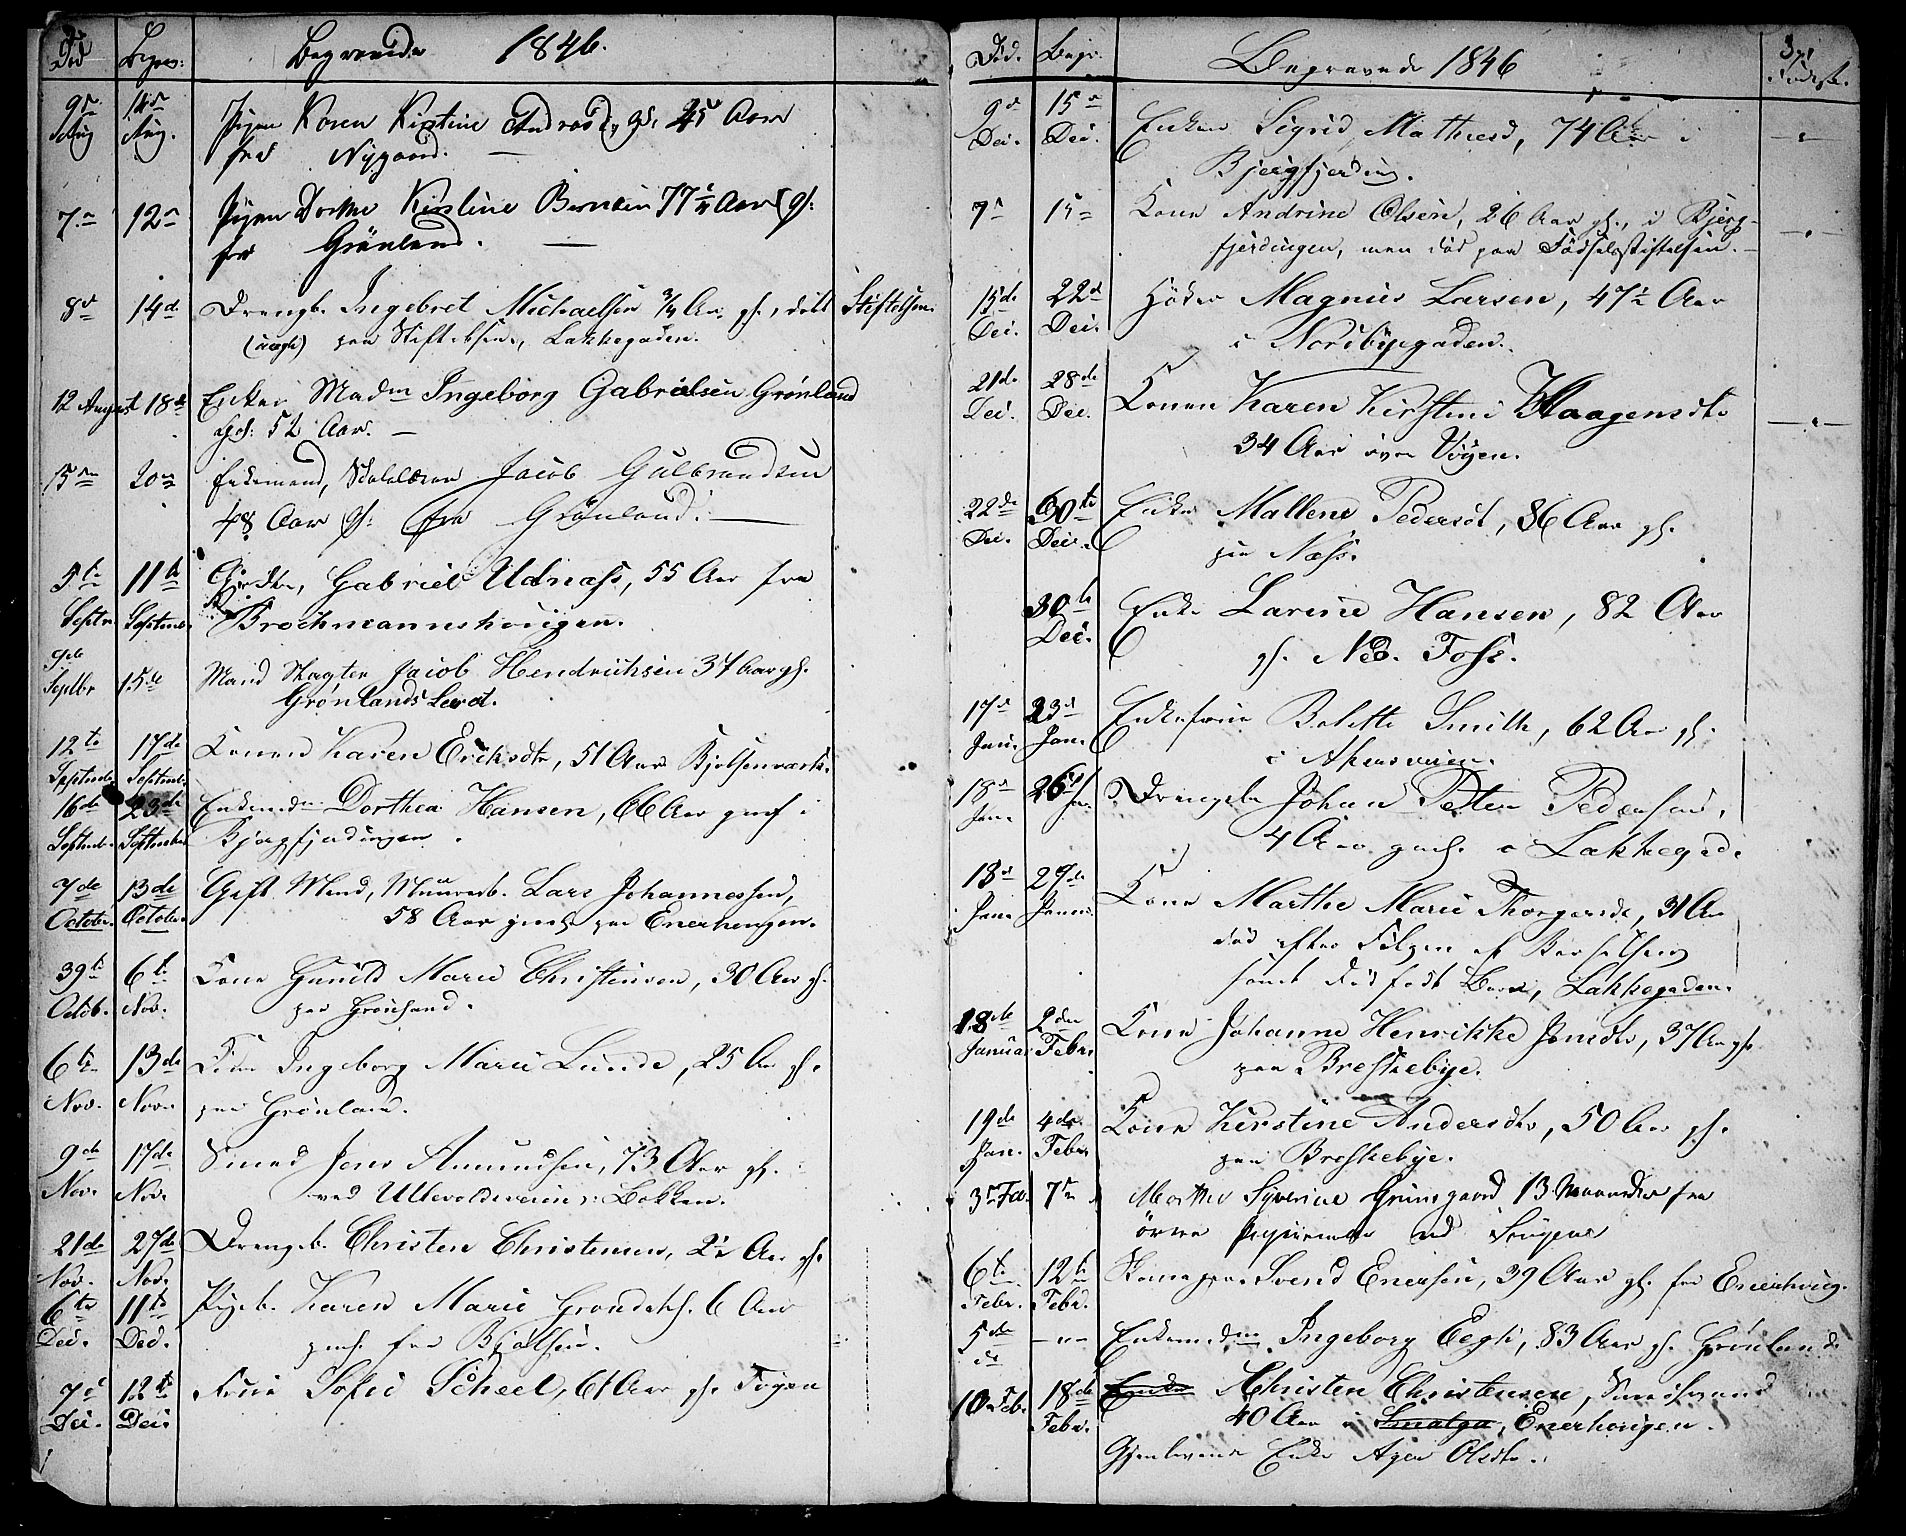 Død Begrav: Begravede 1846.
9de Aug 14de Aug. Pigen Karen Kirstine Andreasd., gl. 25 Aar
fra Nygaard.
7de 12te Pigen Dorthe Kirstine Berntsen 77 Aar gl:
fra Grønland.
8de 14de Drengb. Ingebret Michaelsen 3/4 Aar gl., død Stiftelsen.
(uægte) paa Stiftelsen, Lakkegaden.
12 August 18de Enken Madm Ingeborg Gabrielsen Grønland
gl: 52 Aar.
15de 20de Enkemand, Skolelærer Jacob Gulbrandsen
48 Aar gl: fra Grønland.
5te Septr. 11te Septemb. Gabriel Udnæss, 55 Aar fra
Brochmannshougen.
9de Septbr 15de Mand Jacob Hendrichsen 34 Aar gl.
Grønlands Leret.
12te Septemb. 17de Septemb. Konen Karen Erichsdtr, 51 Aar Bjølsenværk.
16de Septemb. 23de September Enkemdm Dorthea Hansen, 66 Aar gml i
Bjergfjerdingen.
7de October. 13de October. Gift Mand, Muurarb. Lars Johannessen,
58 Aar gml paa Enerhougen.
39te Octob. 6te Nov. Kone Gunild Marie Christensen, 30 Aar gl.
paa Grønland.
6te Nov. 13de Nov. Ingeborg Marie Lunde, 25 Aar gl.
paa Grønland.
9de Nov. 17de Nov. Smed Jens Amundsen, 73 Aar gl.
ved Ullevoldsveien: Bakken.
21de Nov. 27de Nov. Drengb. Christen Christensen, 2 1/2 Aar gl.
6te Dec. 11te Dec. Pigeb. Karen Marie 6 Aar
gml. fra Bjølsen.
7de Dec. 12te Dec. Frue Sofie Scheel, 61 Aar gl. Tøyen
Død. Begr. Begravede 1846 371 Fødest.
9de Dec. 15de Dec. Enken Sigrid Mathisd, 74 Aar i
Bjergfjerding.
7de 15de Kone Andrine Olsen, 26 Aar gl., i Bjerg-
fjerdingen, men død paa Fødselsstiftelsen.
15de Dec. 22de Dec. Høker Magnus Larsen, 47 1/2 Aar
i Nordbygaden.
21de Dec. 28de Dec. Konen Karen Kirstine Haagensdtr
34 Aar øvre Vøyen.
22de Dec. 30te Dec. Enke Mallene Pedersdt, 86 Aar gl.
paa Næss.
30te Dec. Enke Larine Hansen, 82 Aar
gl. Ned. Foss.
17de Jan. 23de Jan. Enkefrue Bolette Smith, 62 Aar gl.
i Akersveien.
18de Jan. 26de Jan. Drengebn Johan Petter Pedersen,
4 Aar gml. i Lakkegad.
18de Jan. 29de Janu. Kone Marthe Marie Thorgersdt, 31 Aar
død efter Følgen af Barselseng
samt dødfødt Barn, Lakkegaden.
18de Januar 2den Febr. Kone Johanne Henrikke Jensdtr, 37 Aar gl.
paa Breskebye.
19de Jan. 4de Febr. Kone Kirstine Andersdtr, 50 Aar gl.
paa Breskebye.
3de Feb. 7de Marthe Syverine Grinsgaard 13 Maaneder fra
øvre Papirmølle ved Sougene
6te Febr. 12te Febr. Svend Enersen, 39 Aar gl. fra Enerhoug.
5de Enkemadm Ingeborg Eegh, 83 Aar gl. Grønland
10 Feb. 18de Febr. Enke Christen Christensen, Smedsvend
40 Aar i Smalga, Enerhougen.
Gjenlevende Enke Olsdtr.